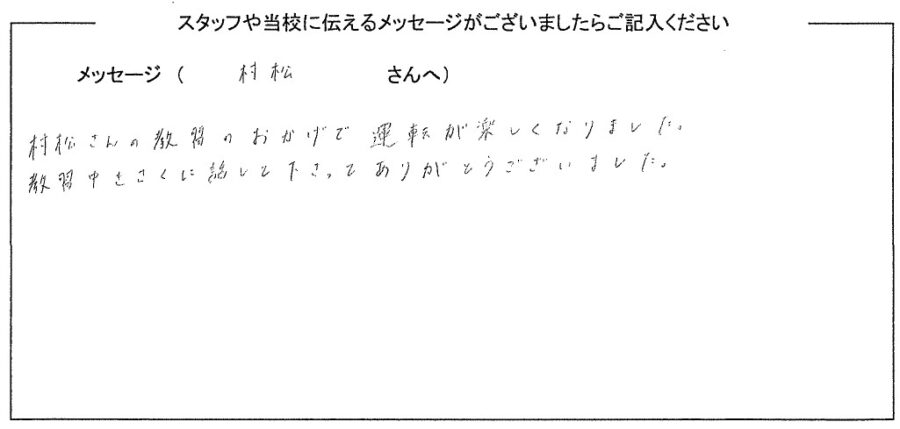 スタッフや当校に伝えるメッセージがございましたらご記入ください
メッセージ（ 村松 さんへ）
村松さんの教習のおかげで運転が楽しくなりました。
教習中きさくに話して下さってありがとうございました。